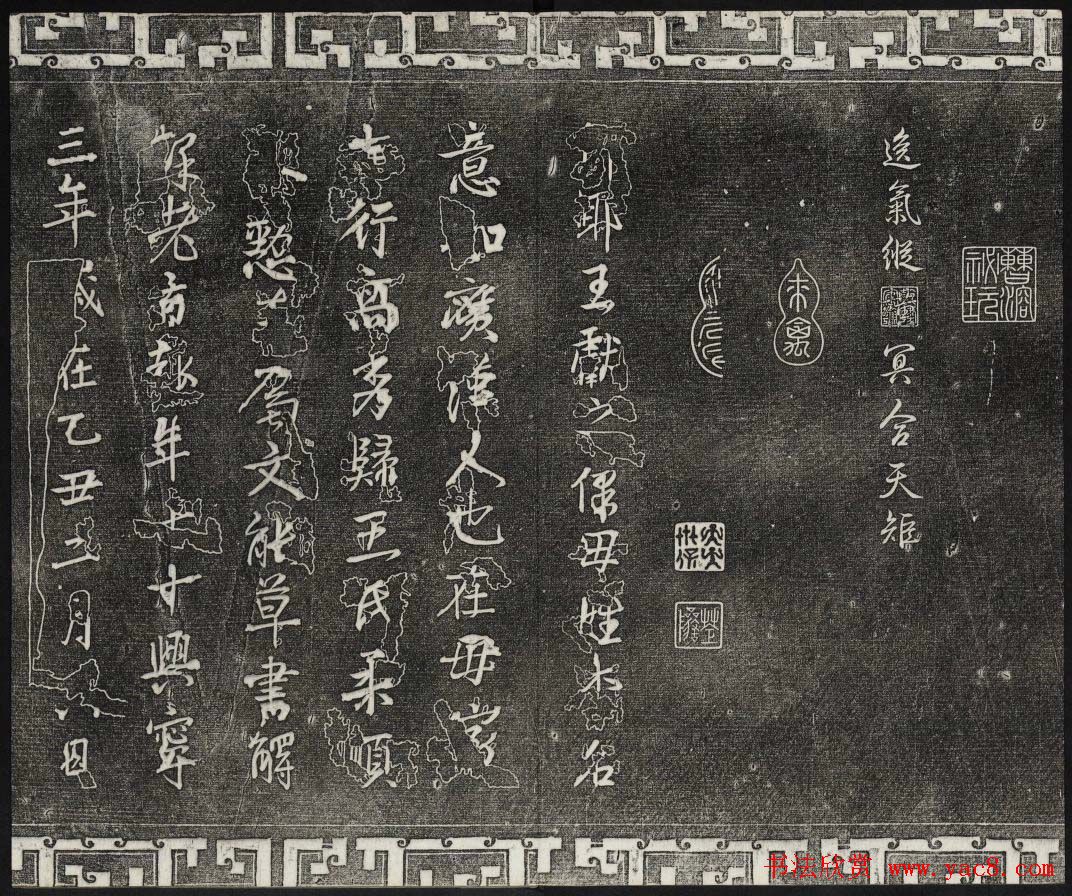 逸氣縱 冥合天矩
曹溶祕玩
琊王獻之保母姓李名
意如廣漢人也在母家
志行高秀歸王氏柔順
恭懃善屬文能草書解
釋老旨趣年七十興寧
三年歲在乙丑二月六日
书法欣赏 www.yac8.com